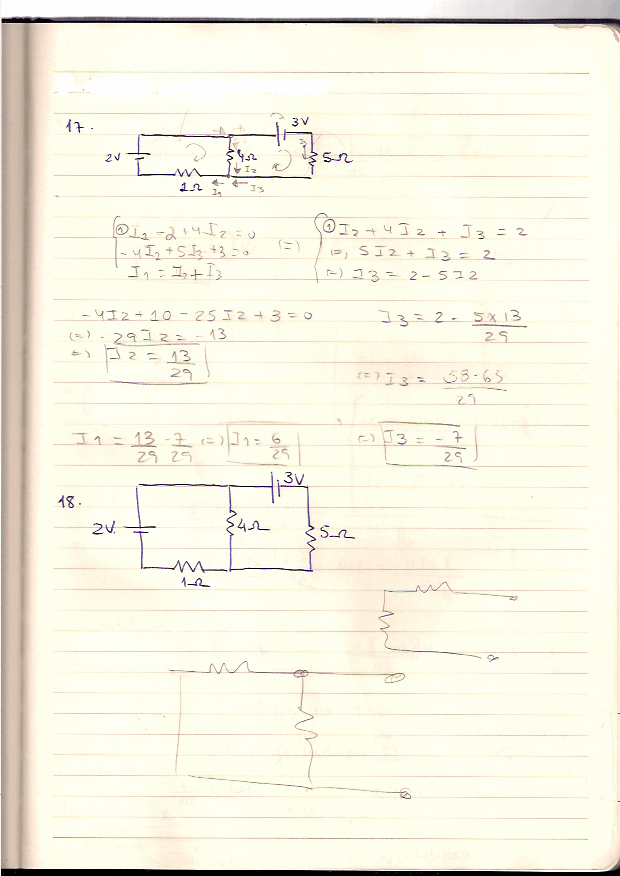 17.
3V
2V
4Ω
5Ω
I2
1Ω
I1
I3
① I1 - 2 + 4I2 = 0
- 4I2 + 5I3 + 3 = 0
I1 = I2 + I3
(=)
① I2 + 4I2 + I3 = 2
(=) 5I2 + I3 = 2
(=) I3 = 2 - 5I2
- 4I2 + 10 - 25I2 + 3 = 0
(=) - 29I2 = - 13
(=) I2 = 13/29
I3 = 2 - 5 x 13/29
(=) I3 = 58 - 65/29
I1 = 13/29 - 7/29 (=) I1 = 6/29
(=) I3 = - 7/29
18.
3V
2V.
4Ω
5Ω
1Ω